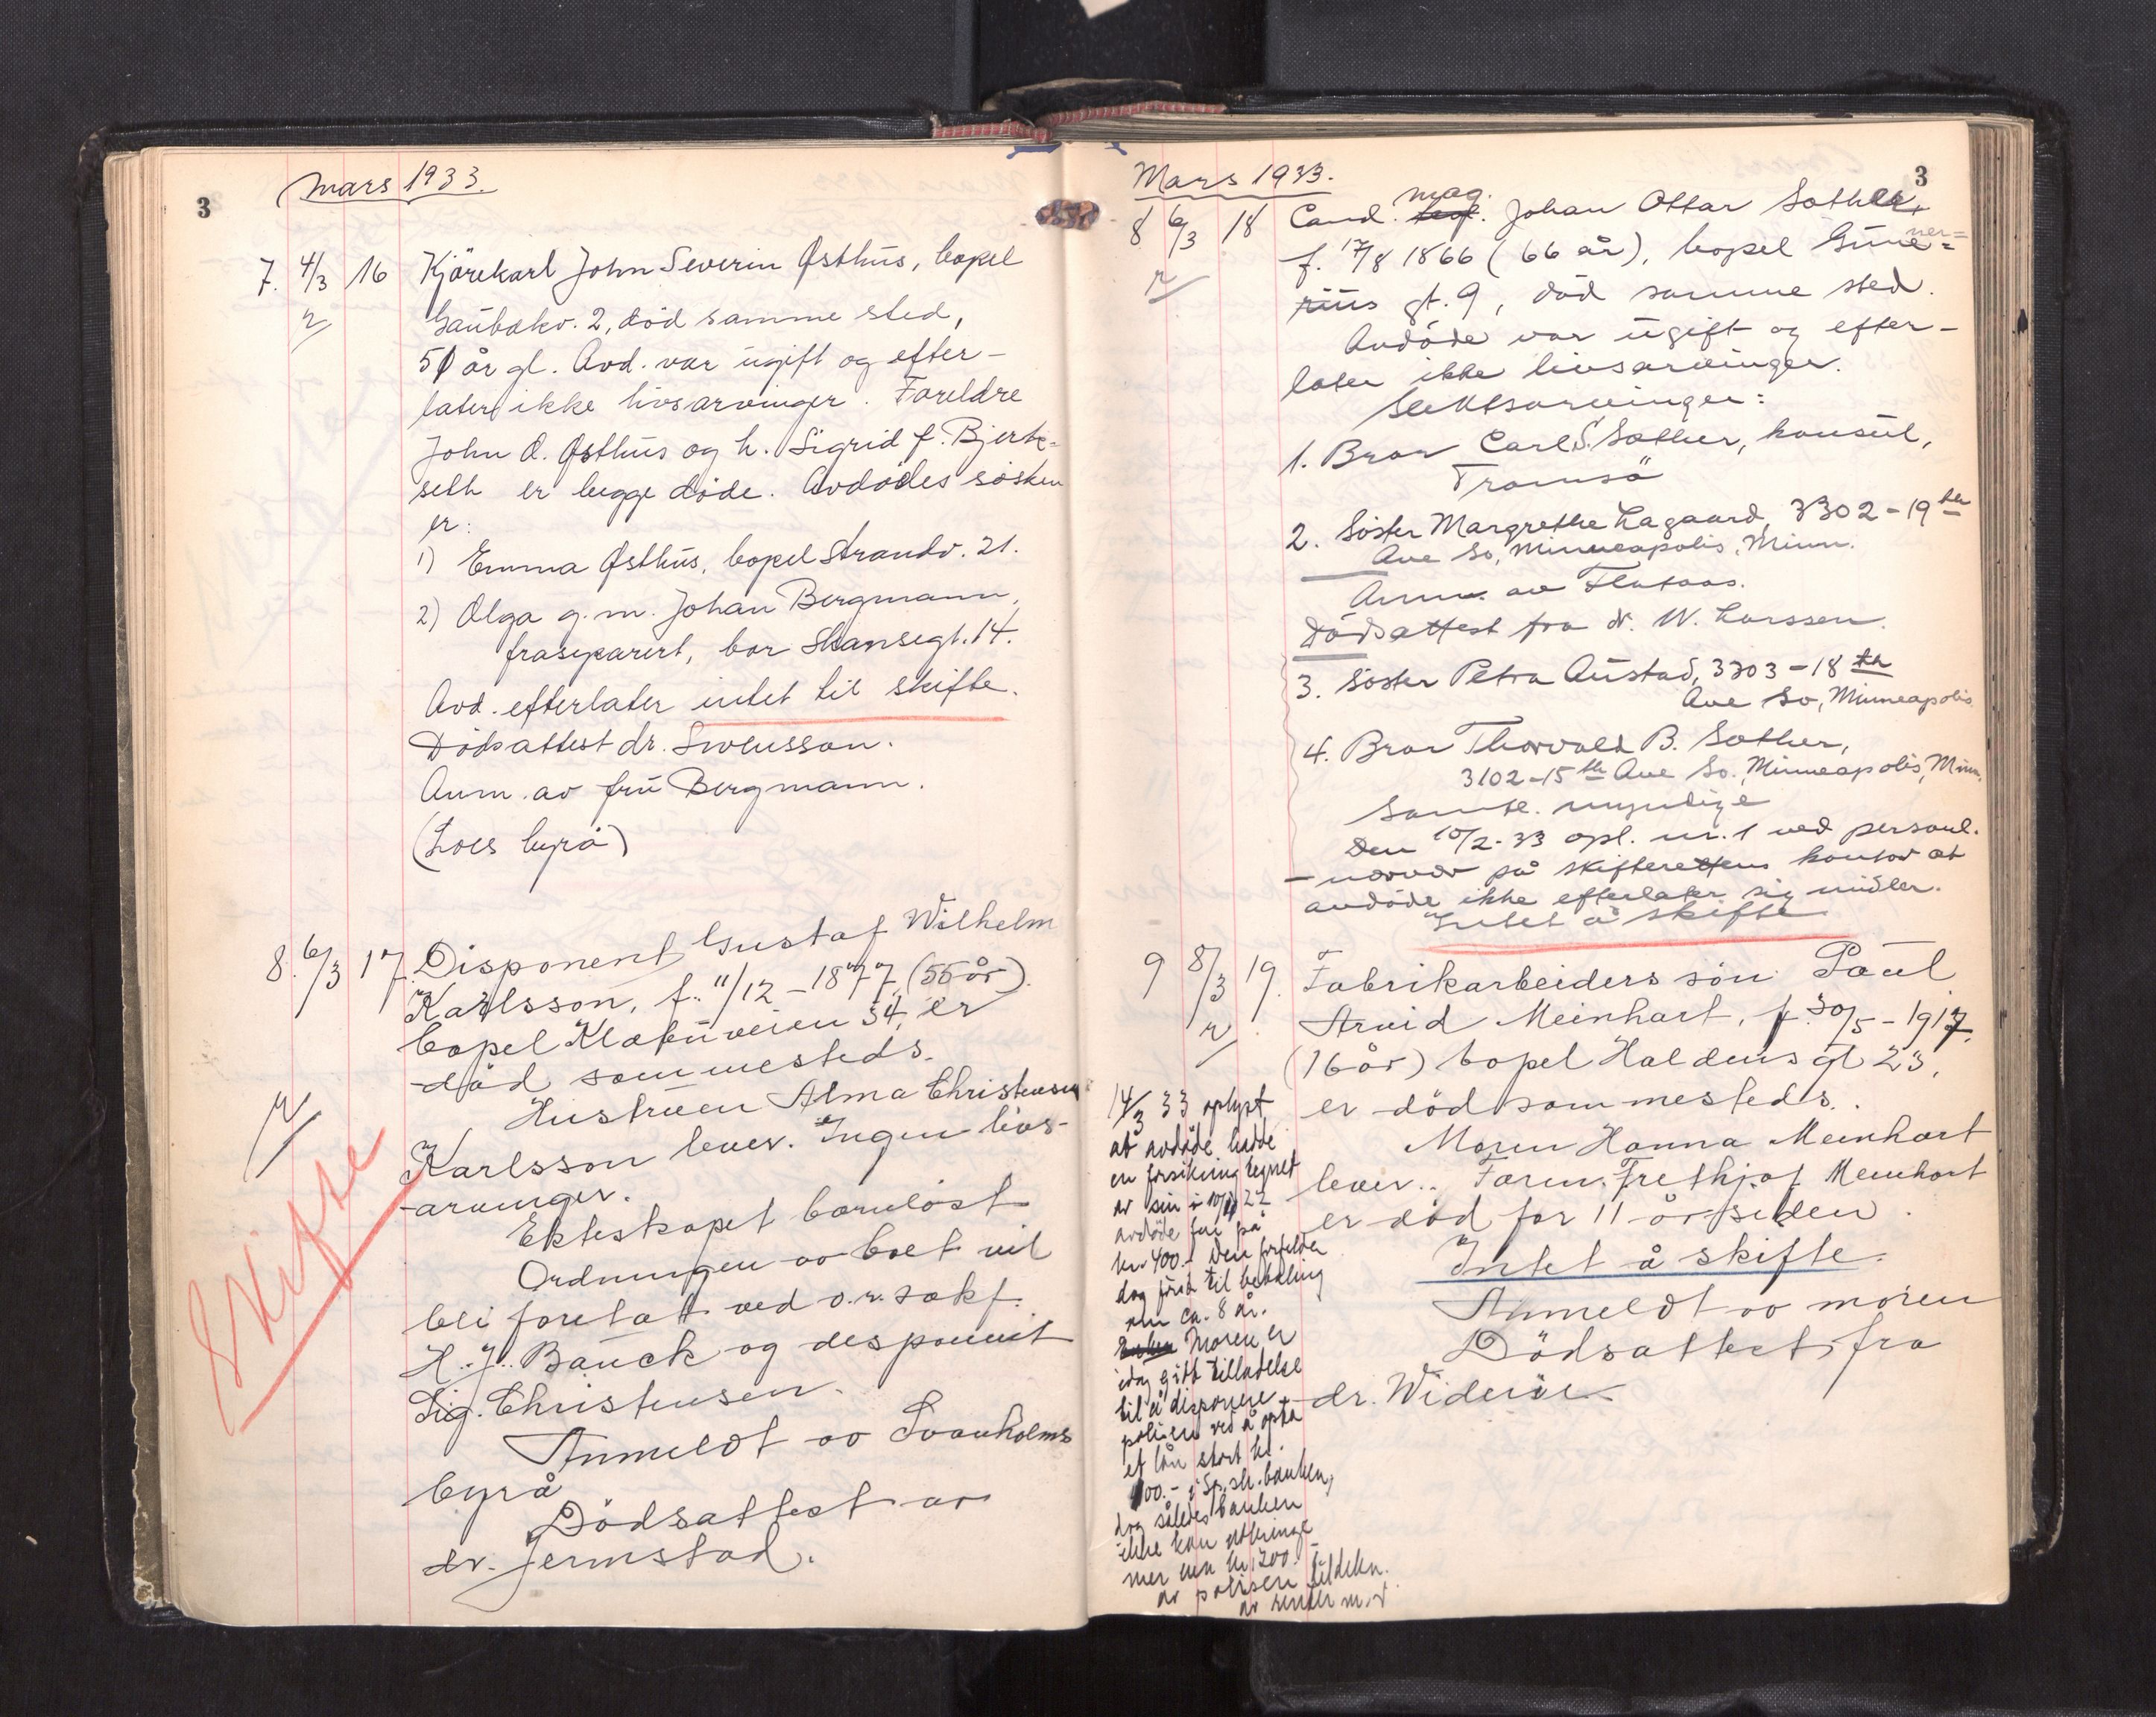 3
Mars 1933.
7. 4/3 16 Kjörekarl John Severin Østhus, bopel
Gaubekv. 2, död samme sted,
51 år gl. Avd. var ugift og efter-
later ikke livsarvinger. Foreldre
John O. Østhus og h. Sigrid f. Bjerke-
seth er begge döde. Avdödes sösken
er:
1) Emma Østhus, bopel Strandv. 21.
2) Olga g.m. Johan Bergmann,
fraseparert, bor Skansegt. 14.
Avd. efterlater intet til skifte.
Dödsattest dr. Svensson.
Anm. av fru Bergmann.
(Loes byrå)
8. 6/3 17. Disponent Gustaf Wilhelm
Karlsson, f. 11/12-1877 (55 år)
bopel Klæbuveien 54, er
död sammesteds.
Hustruen Alma Christensen
Karlsson lever. Ingen livs-
arvinger.
Ekteskapet barnlöst
Ordningen av boet vil
bli foretatt ved o.r.sakf.
H. J. Bauck og disponent
Sig. Christensen.
Anmeldt av Svanholms
byrå
Dödsattest av
dr. Jermstad.
Skifte
3
Mars 1933.
8 6/3 18 Cand. mag. Johan Ottar Sæther,
f. 17/8 1866 (66 år), bopel Gune-
rius gt. 9, död samme sted.
Avdöde var ugift og efter-
later ikke livsarvinger.
Slektsarvinger:
1. Bror Carl S. Sæther, konsul,
Tromsö
2. Söster Margrethe Lagaard, 3302-19th
Ave So, Minneapolis, Minn.
Anm. av Flataas.
Dödsattest fra dr. W. Larssen.
3. Söster Petra Austad, 3303-18th
Ave So, Minneapolis
4. Bror Thorvald B. Sæther,
3102-15th Ave So. Minneapolis, Minn.
Samtl. myndige
Den 10/2-33 opl. nr. 1 ved personl.
nærvær på skifterettens kontor at
avdöde ikke efterlater sig midler.
Intet å skifte
9 8/3 19. Fabrikarbeiders sön Paul
Arvid Meinhart, f. 30/5-1917,
(16 år) bopel Haldens gt 23,
er död sammesteds.
Moren Hanna Meinhart
lever.. Faren Frethjof Meinhart
er död for 11 år siden.
Intet å skifte.
Anmeldt av moren
Dödsattest fra
dr. Wideröe
14/3 33 oplyst
at avdöde hadde
en forsikring tegnet
av sin
avdöde far på
kr. 400.- Den forfalder
dog först til betaling
om ca. 8 år.
Moren er
idag gitt tilladelse
til å disponere
polisen ved å opta
et lån stort kr.
100.- i Sp.sk.banken,
dog således banken
ikke kan
mer enn kr. 200.-
av polisen
av renter m.v.